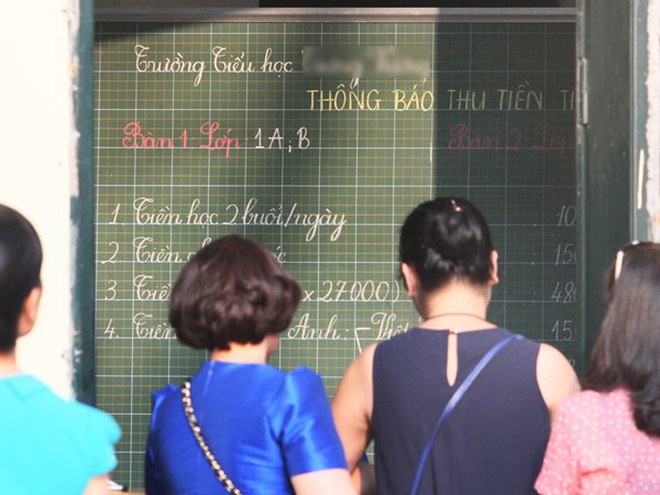 Trường Tiểu học
THÔNG BÁO THU TIỀN
Bàn 1: Lớp 1A; B Bàn 2: Lớp
1. Tiền học 2 buổi/ngày 10
2 Tiền : 150
3 x 27000) : 48
4. Tiền Anh: Việt 15